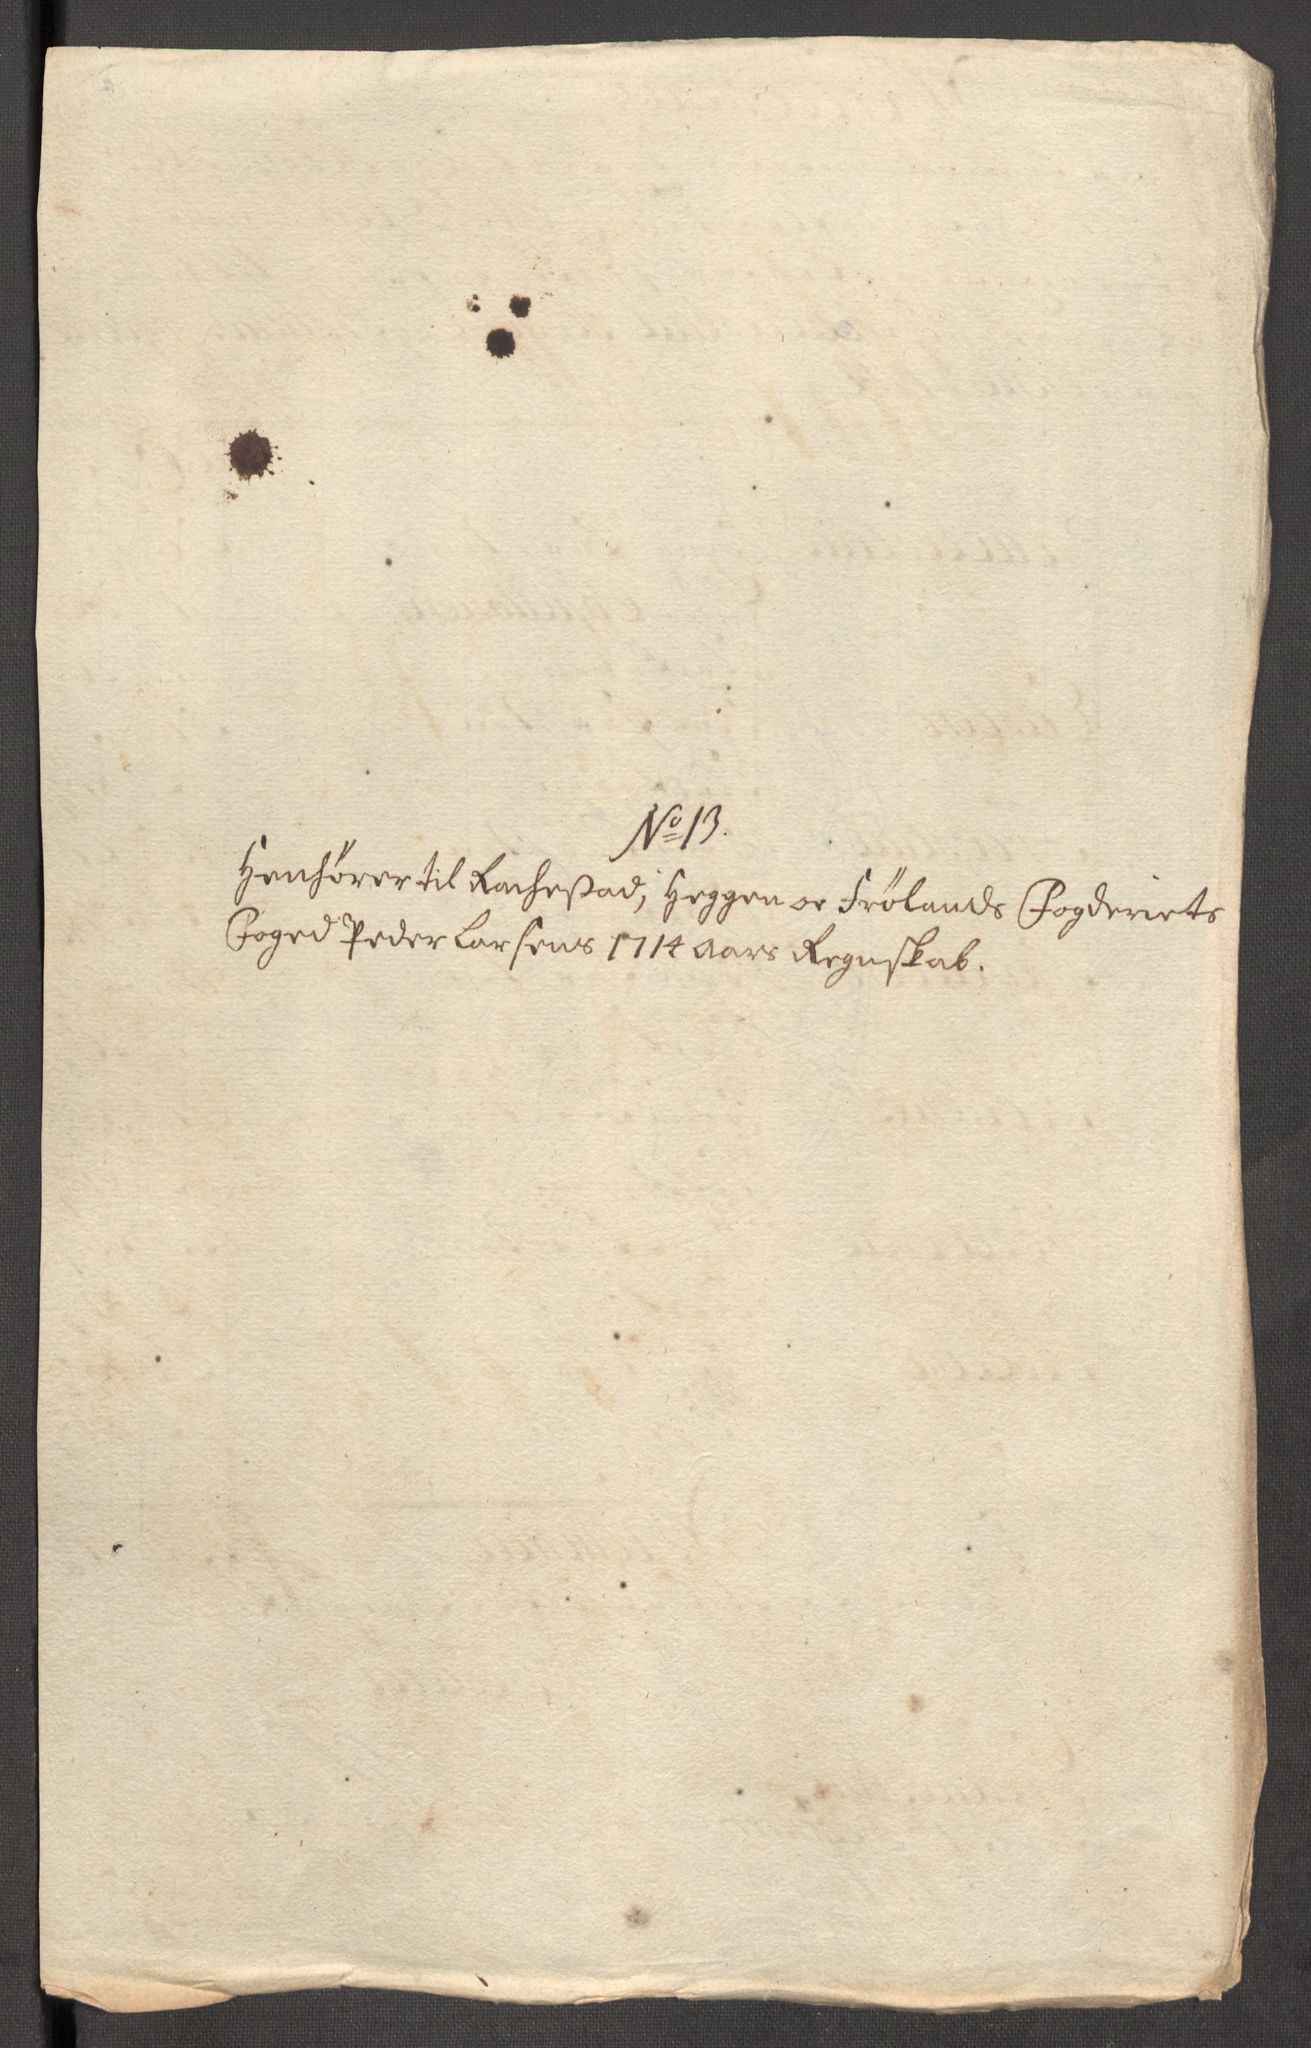 No 13.
Henhører til Rachestad, Heggen oc Frölands Fogderiets
Foged Peder Larsens 1714 Aars Regnskab.